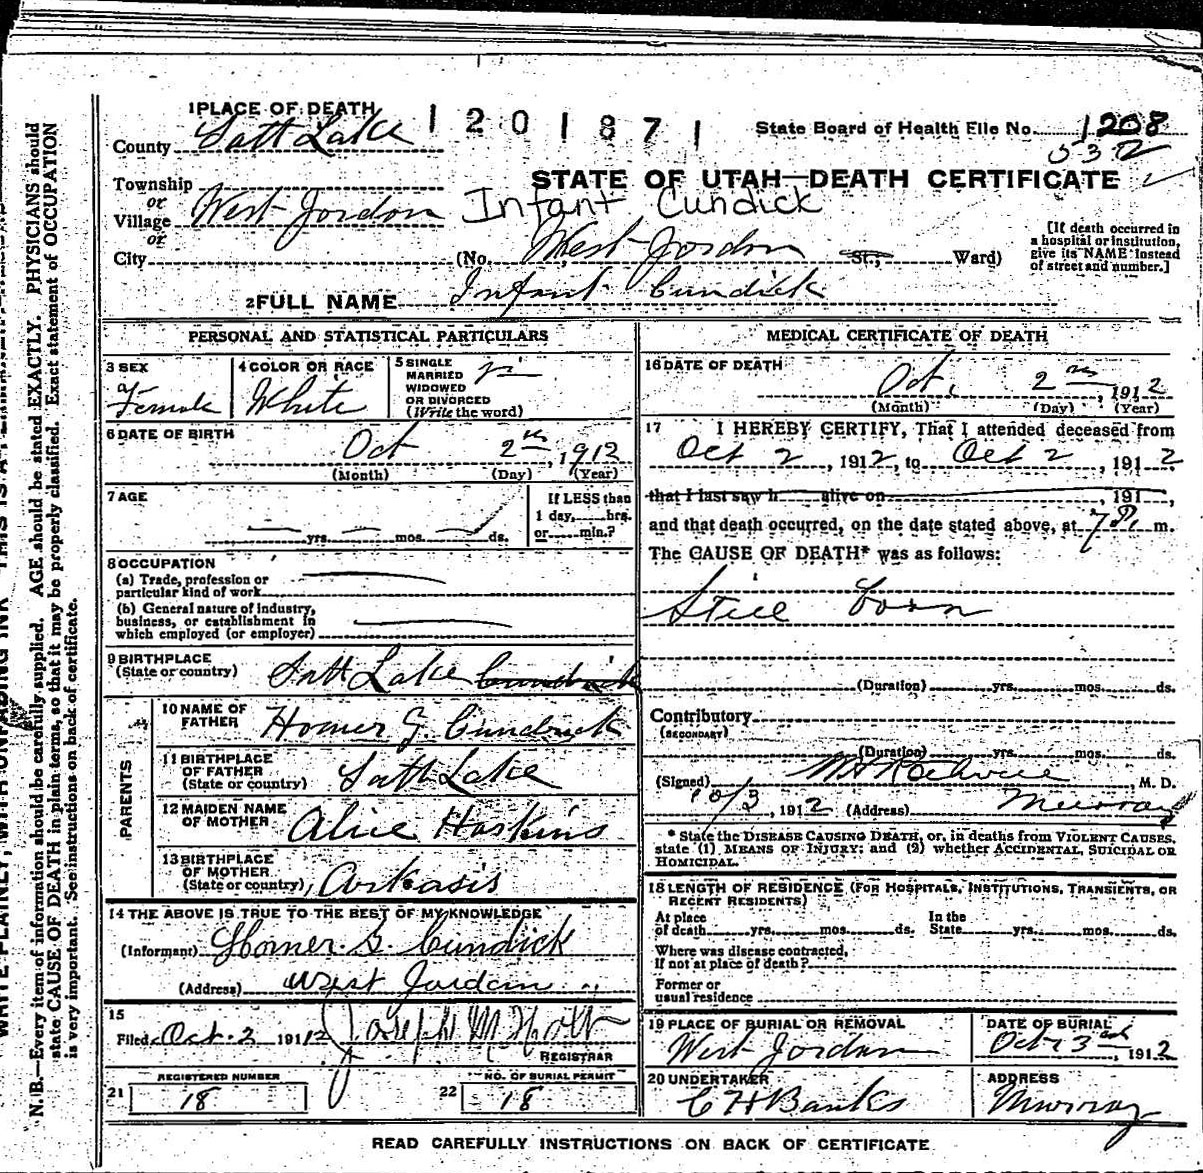 1 PLACE OF DEATH
1201871
State Board of Health File No. 1208
532
County Salt Lake
STATE OF UTAH—DEATH CERTIFICATE
Township
or
Village West Jordon
Infant Cundick
or
City (No. West Jordon St., Ward)
[If death occurred in
a hospital or institution,
give its NAME instead
of street and number.]
2 FULL NAME Infant Cundick
PERSONAL AND STATISTICAL PARTICULARS
3 SEX
Female
4 COLOR OR RACE
White
5 SINGLE
MARRIED
WIDOWED
OR DIVORCED
(Write the word)
6 DATE OF BIRTH
Oct 2nd, 1912
(Month) (Day) (Year)
7 AGE
yrs. mos. ds.
If LESS than
1 day, hrs.
or min.?
8 OCCUPATION
(a) Trade, profession or
particular kind of work
(b) General nature of industry,
business, or establishment in
which employed (or employer)
9 BIRTHPLACE
(State or country) Salt Lake Cundick
PARENTS
10 NAME OF
FATHER Homer G Cundick
11 BIRTHPLACE
OF FATHER
(State or country) Salt Lake
12 MAIDEN NAME
OF MOTHER Alice Haskins
13 BIRTHPLACE
OF MOTHER
(State or country) Arkasis
14 THE ABOVE IS TRUE TO THE BEST OF MY KNOWLEDGE
(Informant) Homer G. Cundick
(Address) West Jordan
15
Filed Oct. 2 1912 Joseph M Holt
REGISTRAR
REGISTERED NUMBER
21 18
NO. OF BURIAL PERMIT
22 18
MEDICAL CERTIFICATE OF DEATH
16 DATE OF DEATH
Oct, 2nd, 1912
(Month) (Day) (Year)
17 I HEREBY CERTIFY, That I attended deceased from
Oct 2, 1912, to Oct 2, 1912
that I last saw h alive on , 191 ,
and that death occurred, on the date stated above, at 7 P. m.
The CAUSE OF DEATH* was as follows:
Still born
(Duration) yrs. mos. ds.
Contributory
(SECONDARY)
(Duration) yrs. mos. ds.
(Signed) , M. D.
10/3, 1912 (Address) Murray
* State the DISEASE CAUSING DEATH, or, in deaths from VIOLENT CAUSES,
state (1) MEANS OF INJURY; and (2) whether ACCIDENTAL, SUICIDAL OR
HOMICIDAL.
18 LENGTH OF RESIDENCE (FOR HOSPITALS, INSTITUTIONS, TRANSIENTS, OR
RECENT RESIDENTS)
At place
of death yrs. mos. ds.
In the
State yrs. mos. ds.
Where was disease contracted,
if not at place of death?
Former or
usual residence
19 PLACE OF BURIAL OR REMOVAL
West Jordan
DATE OF BURIAL
Oct 3rd, 1912
20 UNDERTAKER
C H Banks
ADDRESS
Murray
READ CAREFULLY INSTRUCTIONS ON BACK OF CERTIFICATE
WRITE PLAINLY, WITH UNFADING INK THIS IS A
N. B.—Every item of information should be carefully supplied. AGE should be stated EXACTLY. PHYSICIANS should
state CAUSE OF DEATH in plain terms, so that it may be properly classified. Exact statement of OCCUPATION
is very important. See instructions on back of certificate.